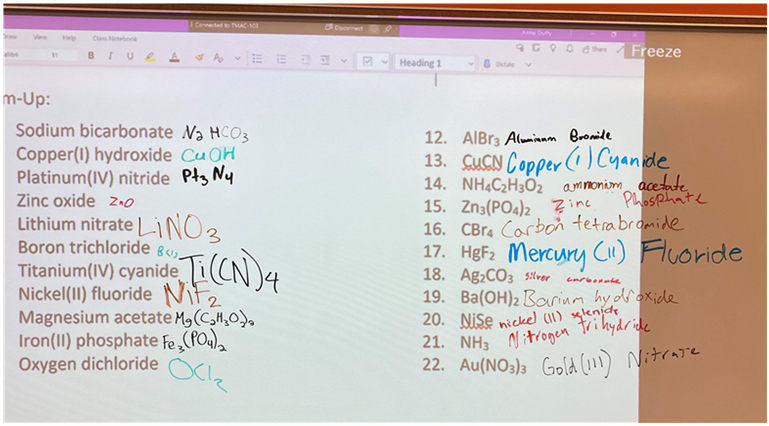 Connected to TMAC-103 Disconnect
Anne Duffy
Draw View Help Class Notebook
Share
Freeze
11 B I U A Heading 1 Dictate
m-Up:
Sodium bicarbonate NaHCO3
Copper(I) hydroxide CuOH
Platinum(IV) nitride Pt3N4
Zinc oxide ZnO
Lithium nitrate LiNO3
Boron trichloride
Titanium(IV) cyanide Ti(CN)4
Nickel(II) fluoride NiF2
Magnesium acetate Mg(C2H3O2)2
Iron(II) phosphate Fe3(PO4)2
Oxygen dichloride OCl2
12. AlBr3 Aluminum Bromide
13. CuCN Copper (I) Cyanide
14. NH4C2H3O2 ammonium acetate
15. Zn3(PO4)2 Zinc Phosphate
16. CBr4 Carbon tetrabromide
17. HgF2 Mercury (II) Fluoride
18. Ag2CO3 silver carbonate
19. Ba(OH)2 Barium hydroxide
20. NiSe nickel (II) selenide
21. NH3 Nitrogen trihydride
22. Au(NO3)3 Gold(III) Nitrate